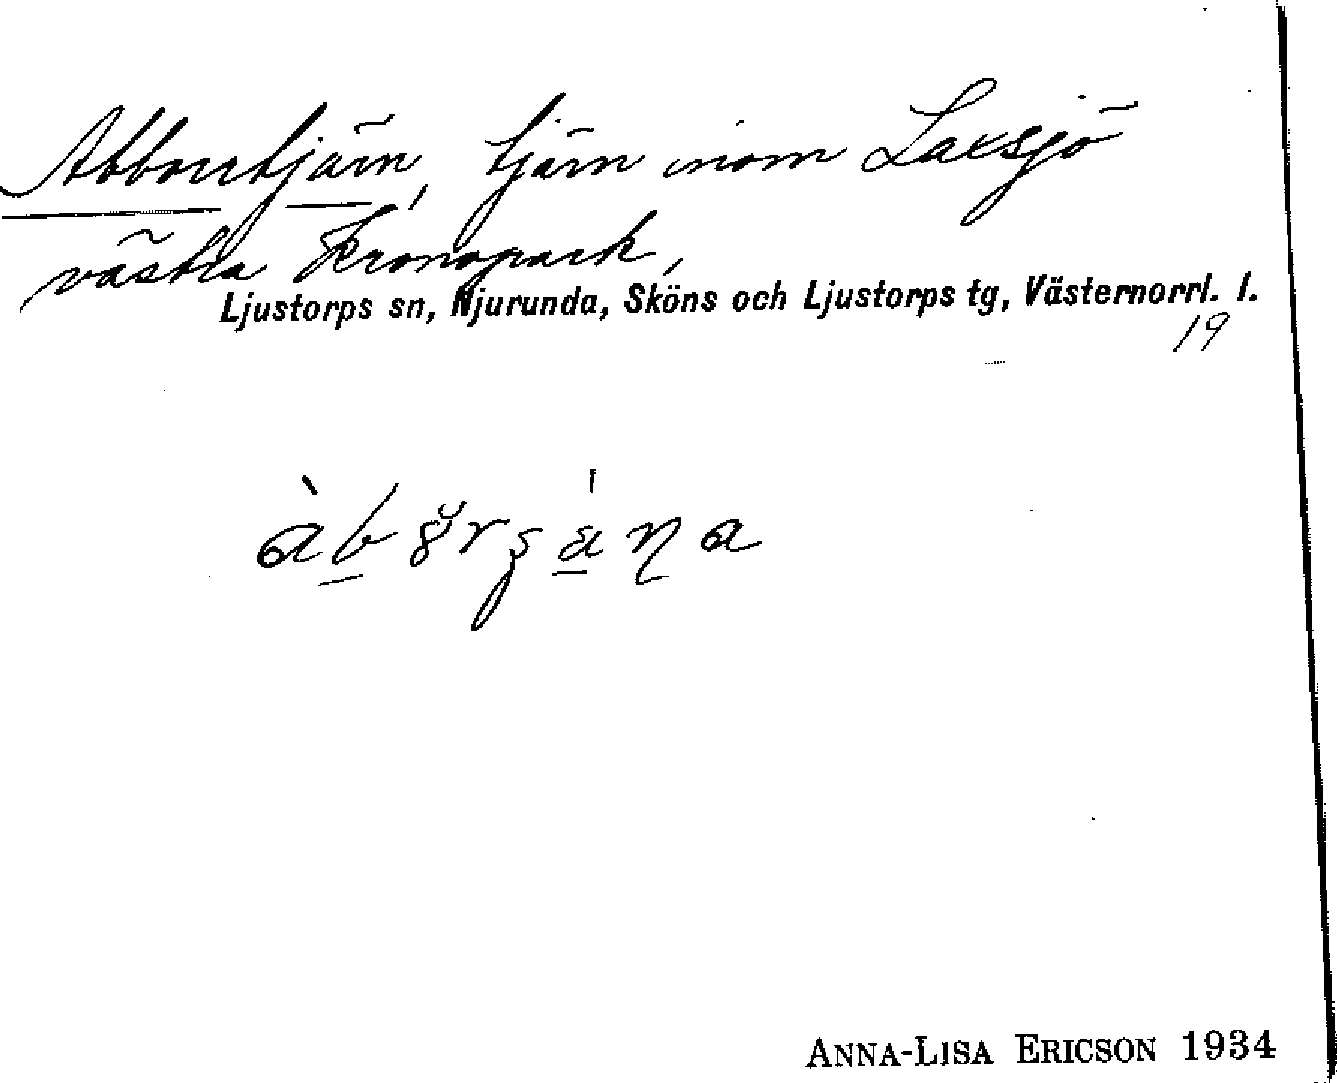 Abborrtjärn, tjärn inom Laxsjö
västra kronopark,
Ljustorps sn, Njurunda, Sköns och Ljustorps tg, Västernorrl. l.
19
ANNA-LISA ERICSON 1934